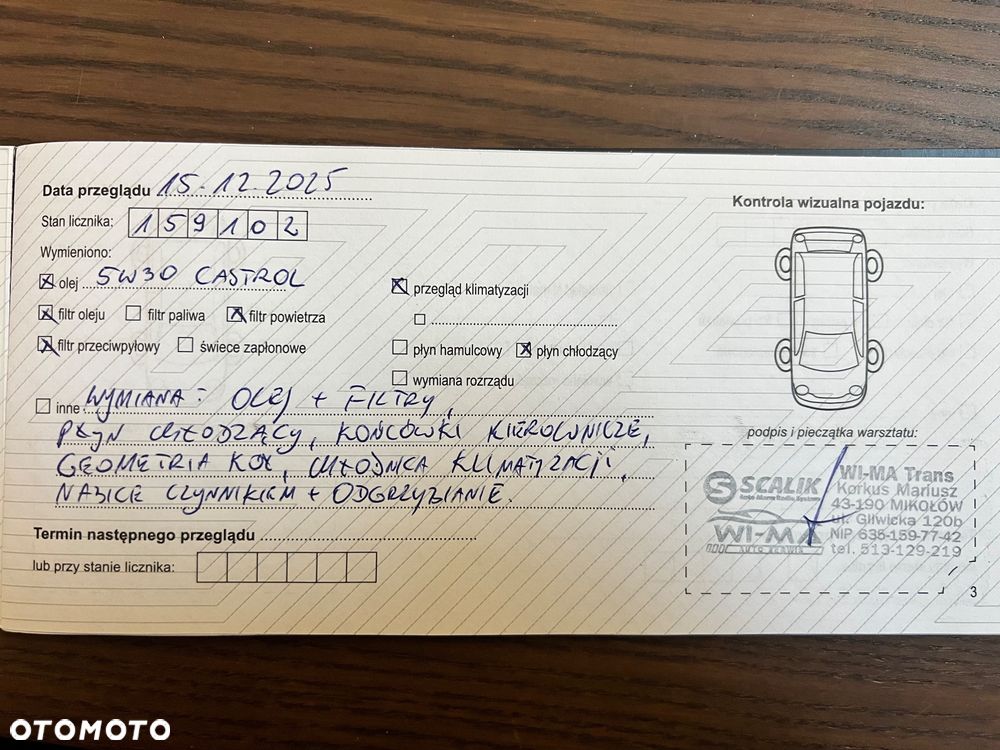 Data przeglądu 15-12.2025
Stan licznika: 159102
Wymieniono:
olej 5W30 CASTROL
filtr oleju filtr paliwa filtr powietrza
filtr przeciwpyłowy świece zapłonowe
przegląd klimatyzacji
płyn hamulcowy płyn chłodzący
wymiana rozrządu
inne WYMIANA: OLEJ + FILTRY,
PŁYN CHŁODZĄCY, KOŃCÓWKI KIEROWNICZE,
GEOMETRIA KÓŁ, CHŁODNICA KLIMATYZACJI,
NABICE CZYNNIKIEM + ODGRZYBIANIE.
Termin następnego przeglądu
lub przy stanie licznika:
Kontrola wizualna pojazdu:
podpis i pieczątka warsztatu:
SCALIK
Auto Alarm Radio System
WI-MA
AUTO SERWIS
WI-MA Trans
Korkus Mariusz
43-190 MIKOŁÓW
ul. Gliwicka 120b
NIP 635-159-77-42
tel. 513-129-219
3
OTOMOTO